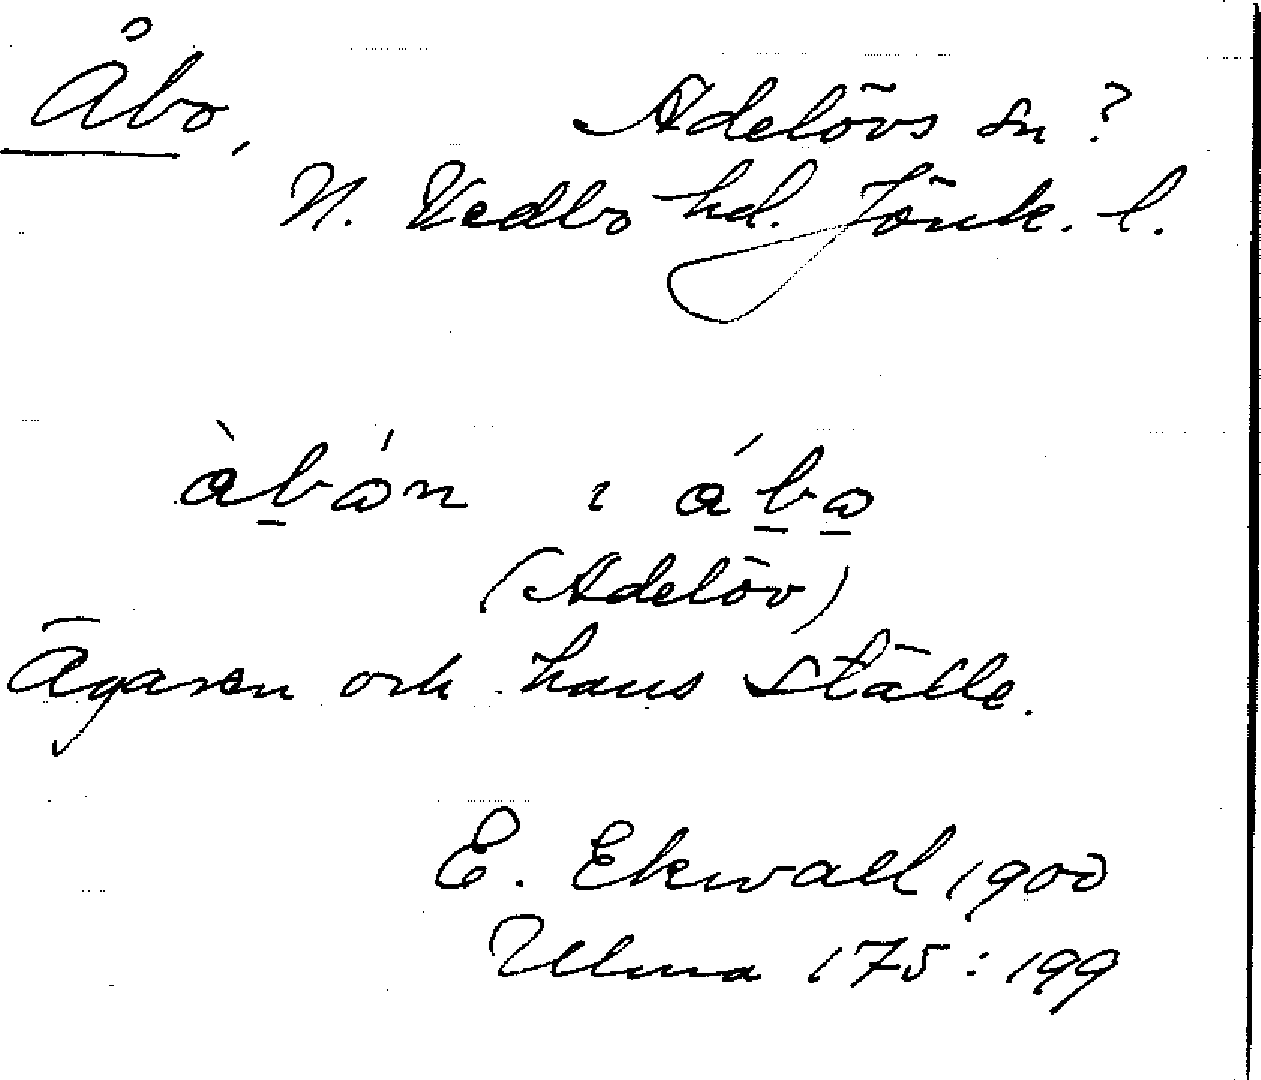 Åbo, Adelövs sn ?
N. Vedbo hd. Jönk. l.
àbán i ába
(Adelöv)
Ägaren och hans ställe.
E. Ekwall 1900
Ulma 175:199